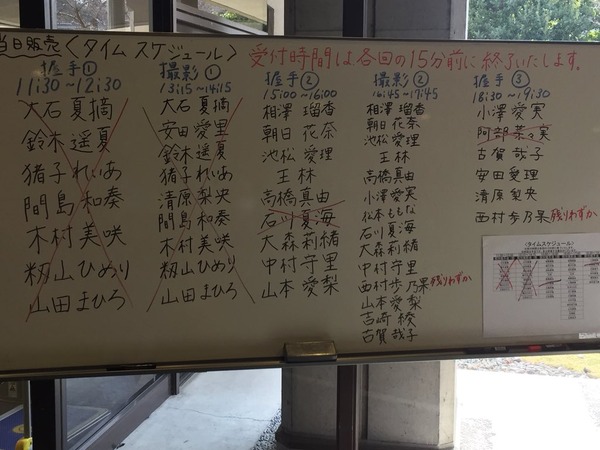 当日販売〈タイム スケジュール〉
受付時間は各回の15分前に終了いたします。
握手①
11:30～12:30
大石 夏摘
鈴木 遥夏
猪子 れいあ
間島 和奏
木村 美咲
籾山 ひめり
山田 まひろ
撮影①
13:15～14:15
大石 夏摘
安田 愛里
鈴木 遥夏
猪子 れいあ
清原 梨央
間島 和奏
木村 美咲
籾山 ひめり
山田 まひろ
握手②
15:00～16:00
相澤 瑠香
朝日 花奈
池松 愛理
王林
高橋 真由
石川 夏海
大森 莉緒
中村 守里
山本 愛梨
撮影②
16:45～17:45
相澤 瑠香
朝日 花奈
池松 愛理
王林
高橋 真由
小澤 愛実
松本 ももな
石川 夏海
大森 莉緒
中村 守里
西村 歩乃果 残りわずか
山本 愛梨
吉崎 綾
古賀 哉子
握手③
18:30～19:30
小澤 愛実
阿部 菜々実
古賀 哉子
安田 愛理
清原 梨央
西村 歩乃果 残りわずか
〈タイムスケジュール〉